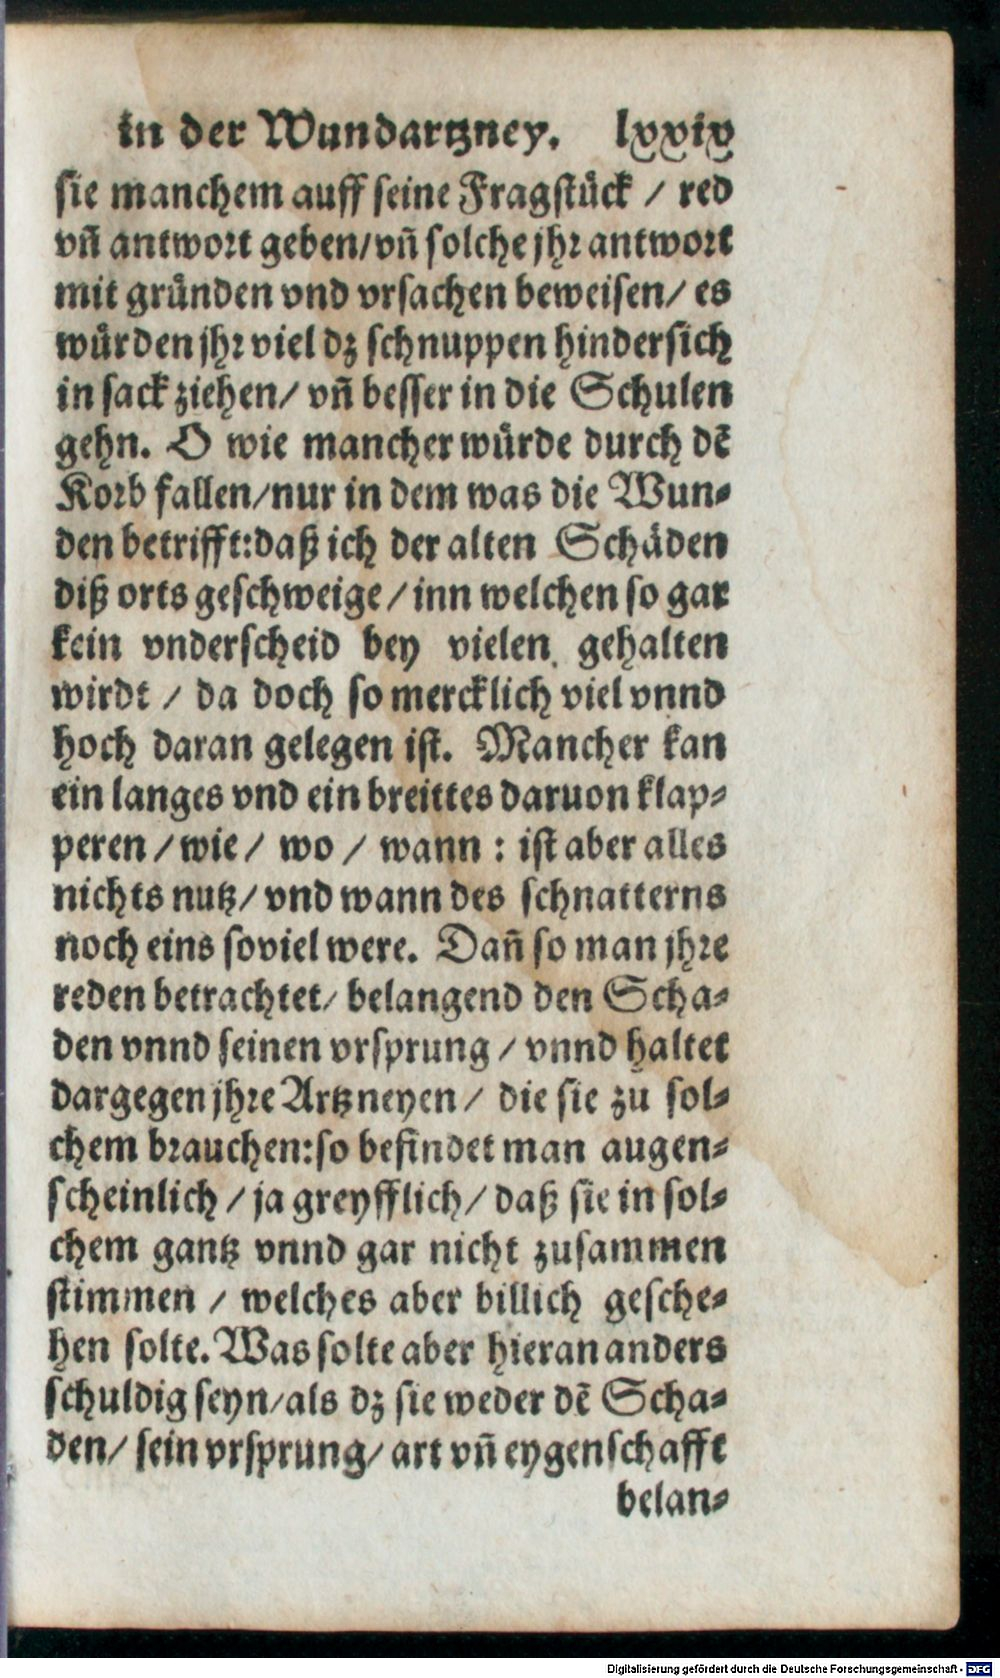 in der Wundartzney. lxxix
sie manchem auff seine Fragstück / red
vñ antwort geben/vñ solche jhr antwort
mit gründen vnd vrsachen beweisen/ es
würden jhr viel dz schnuppen hindersich
in sack ziehen/ vñ besser in die Schulen
gehn. O wie mancher würde durch dẽ
Korb fallen/nur in dem was die Wun-
den betrifft:daß ich der alten Schäden
diß orts geschweige / inn welchen so gar
kein vnderscheid bey vielen gehalten
wirdt / da doch so mercklich viel vnnd
hoch daran gelegen ist. Mancher kan
ein langes vnd ein breittes daruon klap-
peren / wie / wo / wann : ist aber alles
nichts nutz/ vnd wann des schnatterns
noch eins soviel were. Dañ so man jhre
reden betrachtet/ belangend den Scha-
den vnnd seinen vrsprung / vnnd haltet
dargegen jhre Artzneyen / die sie zu sol-
chem brauchen:so befindet man augen-
scheinlich / ja greyfflich / daß sie in sol-
chem gantz vnnd gar nicht zusammen
stimmen / welches aber billich gesche-
hen solte. Was solte aber hieran anders
schuldig seyn/als dz sie weder dẽ Scha-
den/ sein vrsprung/ art vñ eygenschafft
belan-
Digitalisierung gefördert durch die Deutsche Forschungsgemeinschaft - DFG